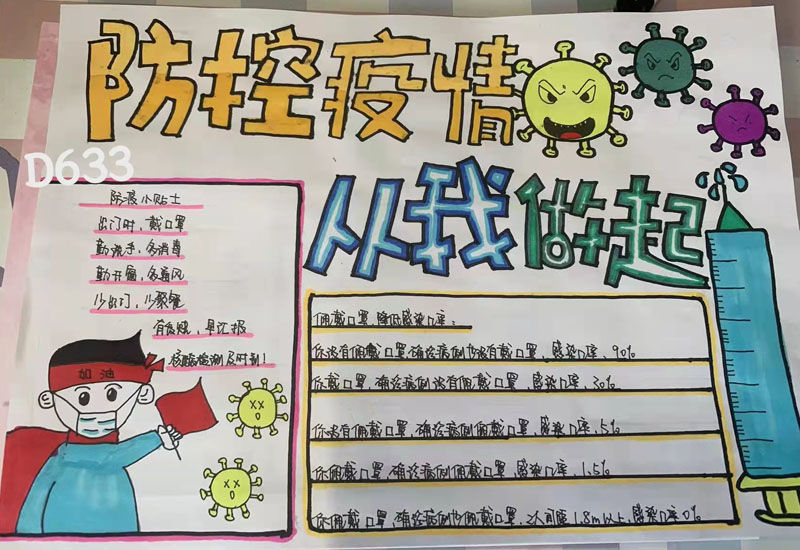 防控疫情
从我做起
D633
防疫小贴士
出门时,戴口罩
勤洗手,多消毒
勤开窗,多通风
少出门,少聚餐
有发烧,早汇报
核酸检测及时到!
加油
佩戴口罩,降低感染口率:
你没有佩戴口罩,确诊病例也没有戴口罩,感染口率,90%
你戴口罩,确诊病例没有佩戴口罩,感染口率,30%
你没有佩戴口罩,确诊病例佩戴口罩,感染口率,5%
你佩戴口罩,确诊病例佩戴口罩,感染口率,1.5%
你佩戴口罩,确诊病例也佩戴口罩,2人间距1.8m以上,感染口率0%